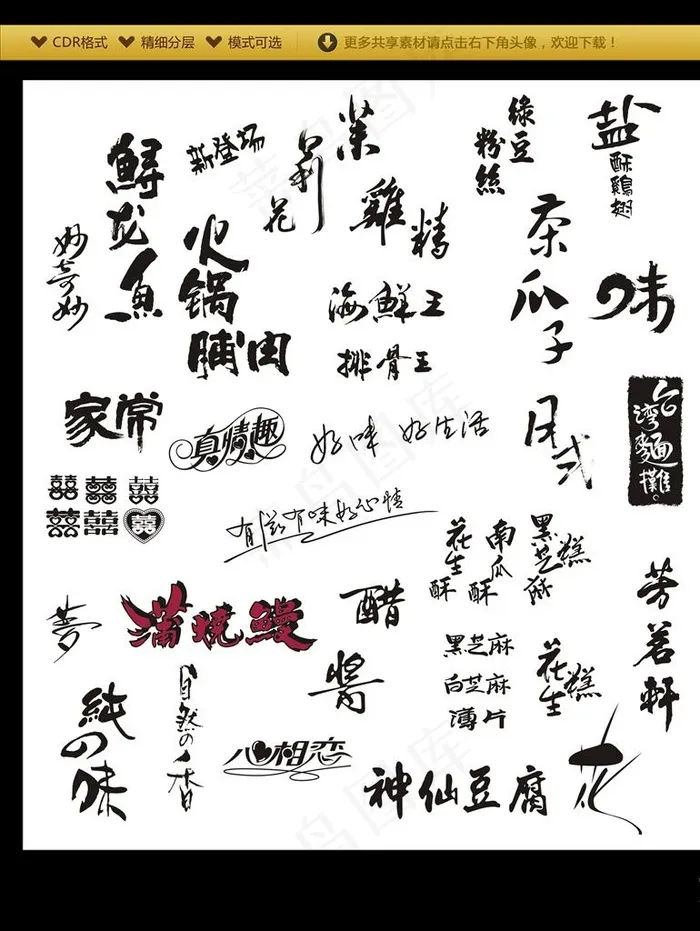 CDR格式 精细分层 模式可选 更多共享素材请点击右下角头像，欢迎下载！
鲟龙鱼
新登场
茉莉花
綠豆粉絲
盐酥鷄翅
妙奇妙
火锅脯肉
雞精
茶瓜子
味
海鮮王
排骨王
家常
真情趣
好味 好生活
日式
台灣麵攤
囍囍囍
囍囍囍
有滋有味好心情
花生酥
南瓜酥
黑芝麻糕
夢
蒲烧鳗
醋
芳茗轩
黑芝麻
白芝麻
薄片
花生糕
醬
純の味
自然の香
心相恋
神仙豆腐
花
菜鸟图库